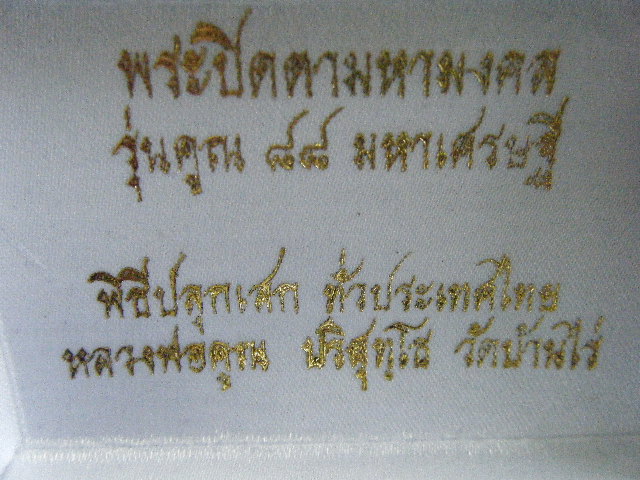 พระปิดตามหามงคล
รุ่นคูณ ๘๘ มหาเศรษฐี
พิธีปลุกเสก ทั่วประเทศไทย
หลวงพ่อคูณ ปริสุทฺโธ วัดบ้านไร่